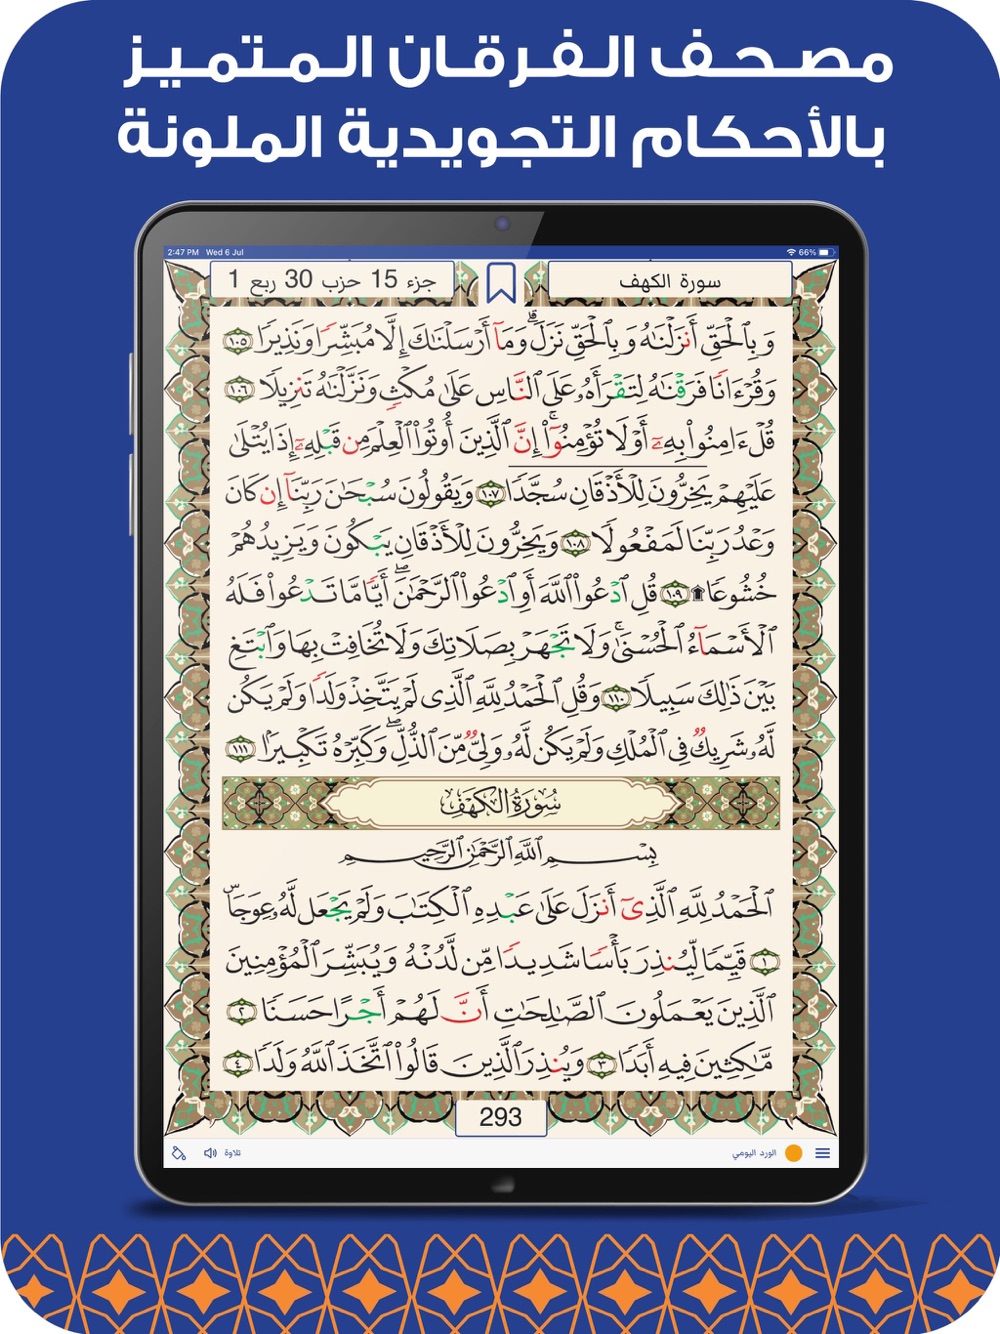 مصحف الفرقان المتميز
بالأحكام التجويدية الملونة
2:47 PM Wed 6 Jul
66%
سورة الكهف
جزء 15 حزب 30 ربع 1
وَبِٱلْحَقِّ أَنزَلْنَٰهُ وَبِٱلْحَقِّ نَزَلَ ۗ وَمَآ أَرْسَلْنَٰكَ إِلَّا مُبَشِّرًا وَنَذِيرًا ١٠٥
وَقُرْءَانًا فَرَقْنَٰهُ لِتَقْرَأَهُۥ عَلَى ٱلنَّاسِ عَلَىٰ مُكْثٍ وَنَزَّلْنَٰهُ تَنزِيلًا ١٠٦
قُلْ ءَامِنُوا۟ بِهِۦٓ أَوْ لَا تُؤْمِنُوٓا۟ ۚ إِنَّ ٱلَّذِينَ أُوتُوا۟ ٱلْعِلْمَ مِن قَبْلِهِۦٓ إِذَا يُتْلَىٰ
عَلَيْهِمْ يَخِرُّونَ لِلْأَذْقَانِ سُجَّدًا ١٠٧ وَيَقُولُونَ سُبْحَٰنَ رَبِّنَآ إِن كَانَ
وَعْدُ رَبِّنَا لَمَفْعُولًا ١٠٨ وَيَخِرُّونَ لِلْأَذْقَانِ يَبْكُونَ وَيَزِيدُهُمْ
خُشُوعًا ۩ ١٠٩ قُلِ ٱدْعُوا۟ ٱللَّهَ أَوِ ٱدْعُوا۟ ٱلرَّحْمَٰنَ ۖ أَيًّا مَّا تَدْعُوا۟ فَلَهُ
ٱلْأَسْمَآءُ ٱلْحُسْنَىٰ ۚ وَلَا تَجْهَرْ بِصَلَاتِكَ وَلَا تُخَافِتْ بِهَا وَٱبْتَغِ
بَيْنَ ذَٰلِكَ سَبِيلًا ١١٠ وَقُلِ ٱلْحَمْدُ لِلَّهِ ٱلَّذِى لَمْ يَتَّخِذْ وَلَدًا وَلَمْ يَكُن
لَّهُۥ شَرِيكٌ فِى ٱلْمُلْكِ وَلَمْ يَكُن لَّهُۥ وَلِىٌّ مِّنَ ٱلذُّلِّ ۖ وَكَبِّرْهُ تَكْبِيرًۢا ١١١
سُورَةُ الكَهْفِ
بِسْمِ ٱللَّهِ ٱلرَّحْمَٰنِ ٱلرَّحِيمِ
ٱلْحَمْدُ لِلَّهِ ٱلَّذِىٓ أَنزَلَ عَلَىٰ عَبْدِهِ ٱلْكِتَٰبَ وَلَمْ يَجْعَل لَّهُۥ عِوَجَا ۜ
١ قَيِّمًا لِّيُنذِرَ بَأْسًا شَدِيدًا مِّن لَّدُنْهُ وَيُبَشِّرَ ٱلْمُؤْمِنِينَ
ٱلَّذِينَ يَعْمَلُونَ ٱلصَّٰلِحَٰتِ أَنَّ لَهُمْ أَجْرًا حَسَنًا ٢
مَّٰكِثِينَ فِيهِ أَبَدًا ٣ وَيُنذِرَ ٱلَّذِينَ قَالُوا۟ ٱتَّخَذَ ٱللَّهُ وَلَدًا ٤
293
الورد اليومي
تلاوة